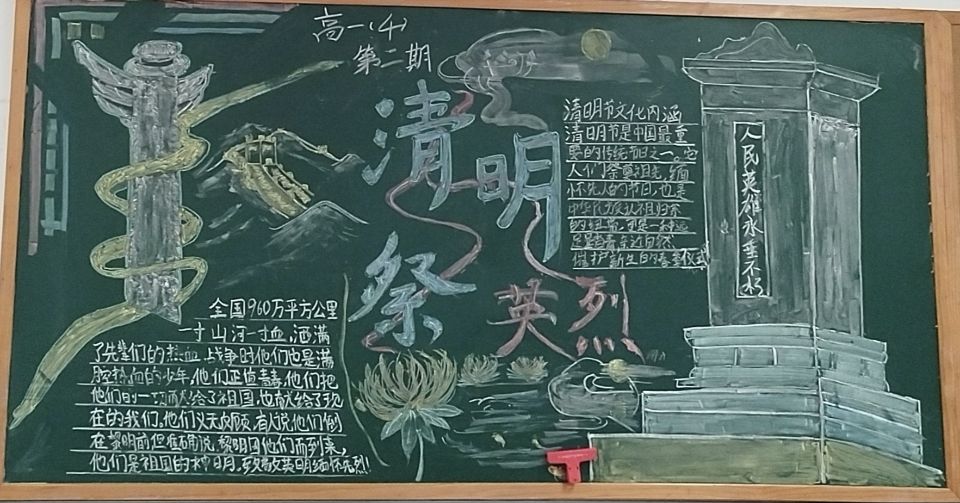 高一(4)
第二期
清明
祭
英烈
全国960万平方公里
一寸山河一寸血,洒满
了先辈们的热血,战争时他们也是满
腔热血的少年,他们正值青春,他们把
他们的一切献给了祖国,也献给了现
在的我们,他们义无反顾,有人说他们倒
在黎明前但我说,黎明因他们而到来,
他们是祖国的神明,致敬英明缅怀先烈!
清明节文化内涵
清明节是中国最重
要的传统节日之一。它
人们祭奠祖先,缅
怀先人的节日,也是
中华民族认祖归宗
的纽带,更是一种远
足踏青亲近自然
催护新生的春季仪式
人民英雄永垂不朽